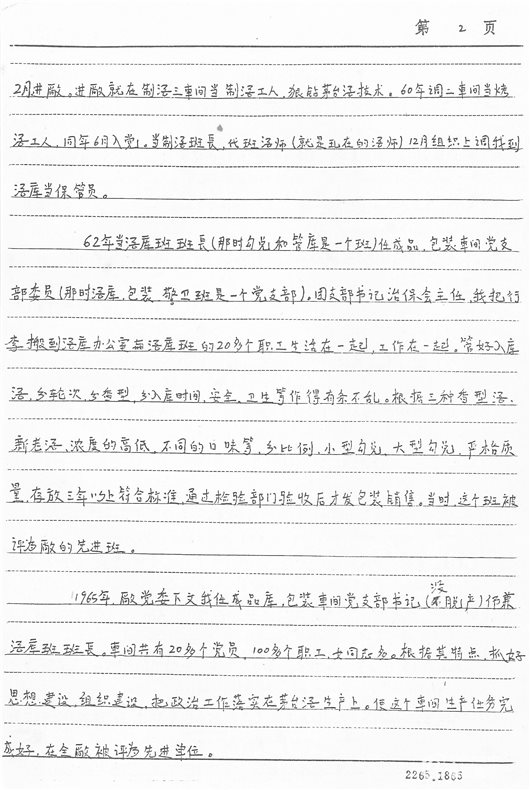 第 2 页
2月进廠。进廠就在制酒三車间当制酒工人,狠钻茅台酒技术。60年调二車间当烤
酒工人,同年6月入党。当制酒班長,代班酒师(就是现在的酒师)12月组织上调我到
酒库当保管员。
62年当酒库班班長(那时勾兑和管库是一个班)任成品,包装車间党支
部委员(那时酒库,包装,警卫班是一个党支部)。团支部书记治保会主任,我把行
李搬到酒库办公室与酒库班的20多个职工生活在一起,工作在一起。管好入库
酒,分轮次,分香型,分入库时间,安全,卫生等作得有条不乱。根据三种香型酒,
新老酒,浓度的高低,不同的口味等,分比例,小型勾兑,大型勾兑,严格质
量,存放三年以上符合标准,通过检验部门验收后才发包装销售。当时,这个班被
评为廠的先进班。
没
1965年,廠党委下文我任成品库,包装車间党支部书记(不脱产)仍兼
酒库班班長。車间共有20多个党员,100多个职工,女同志多。根据其特点,抓好
思想建设,组织建设,把政治工作落实在茅台酒生产上。使这个車间生产任务完
成好,在全廠被评为先进单位。
2265.1865